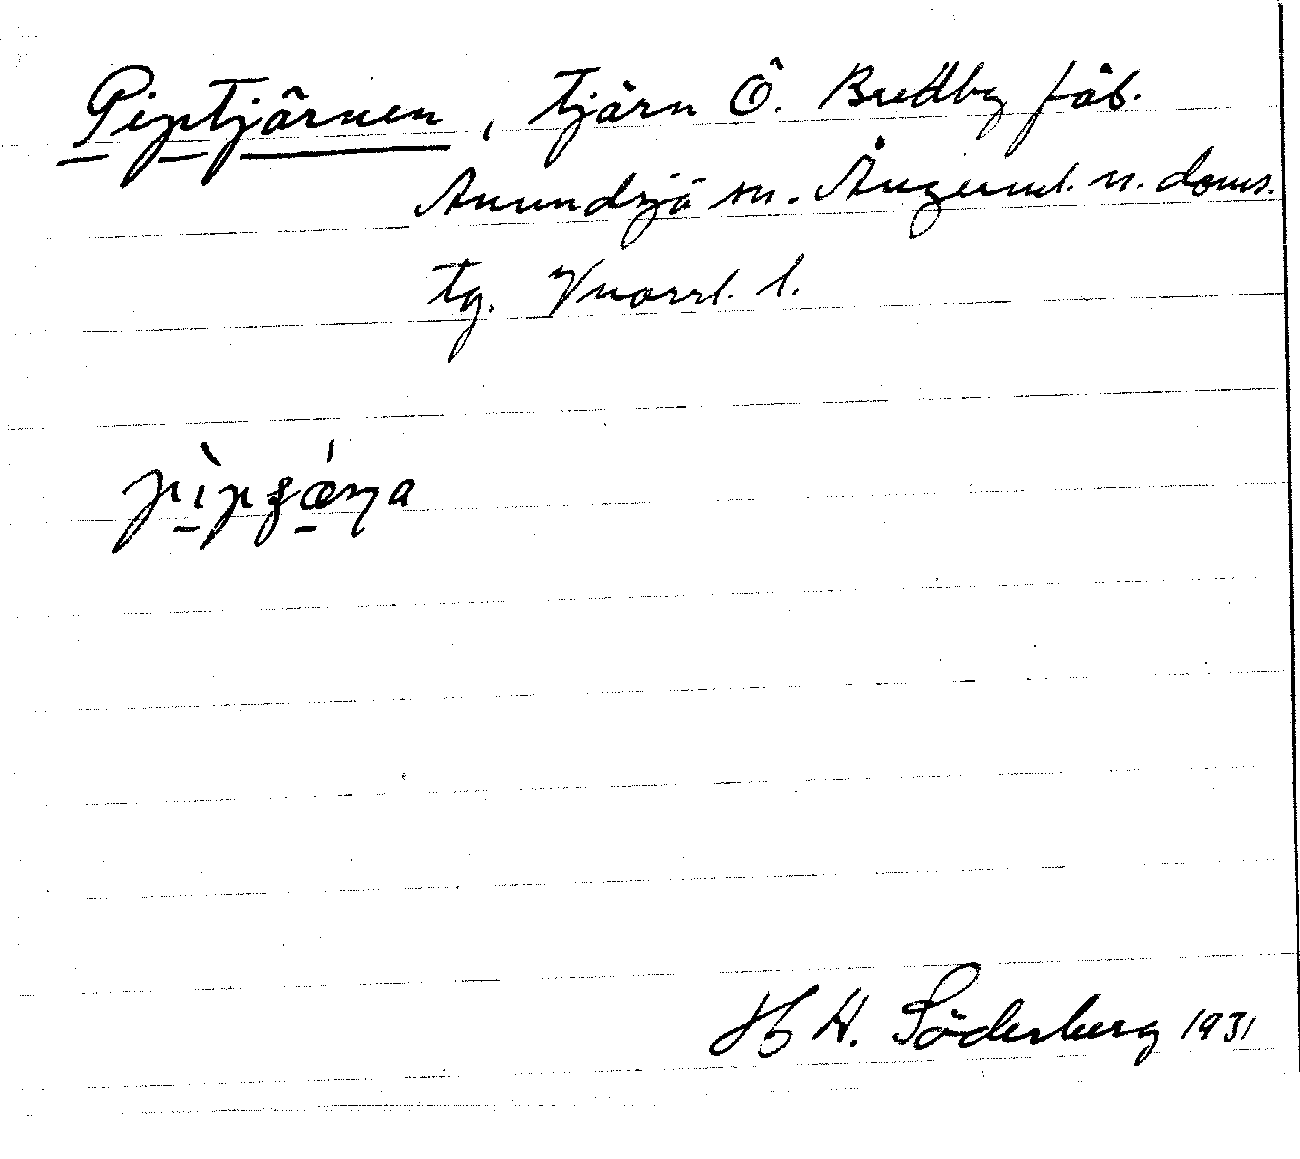 Piptjärnen, tjärn Ö. Bredby fäb.
Anundsjö sn. Ångerml. n. doms.
tg. Vnorrl. l.
H W. Söderberg 1931